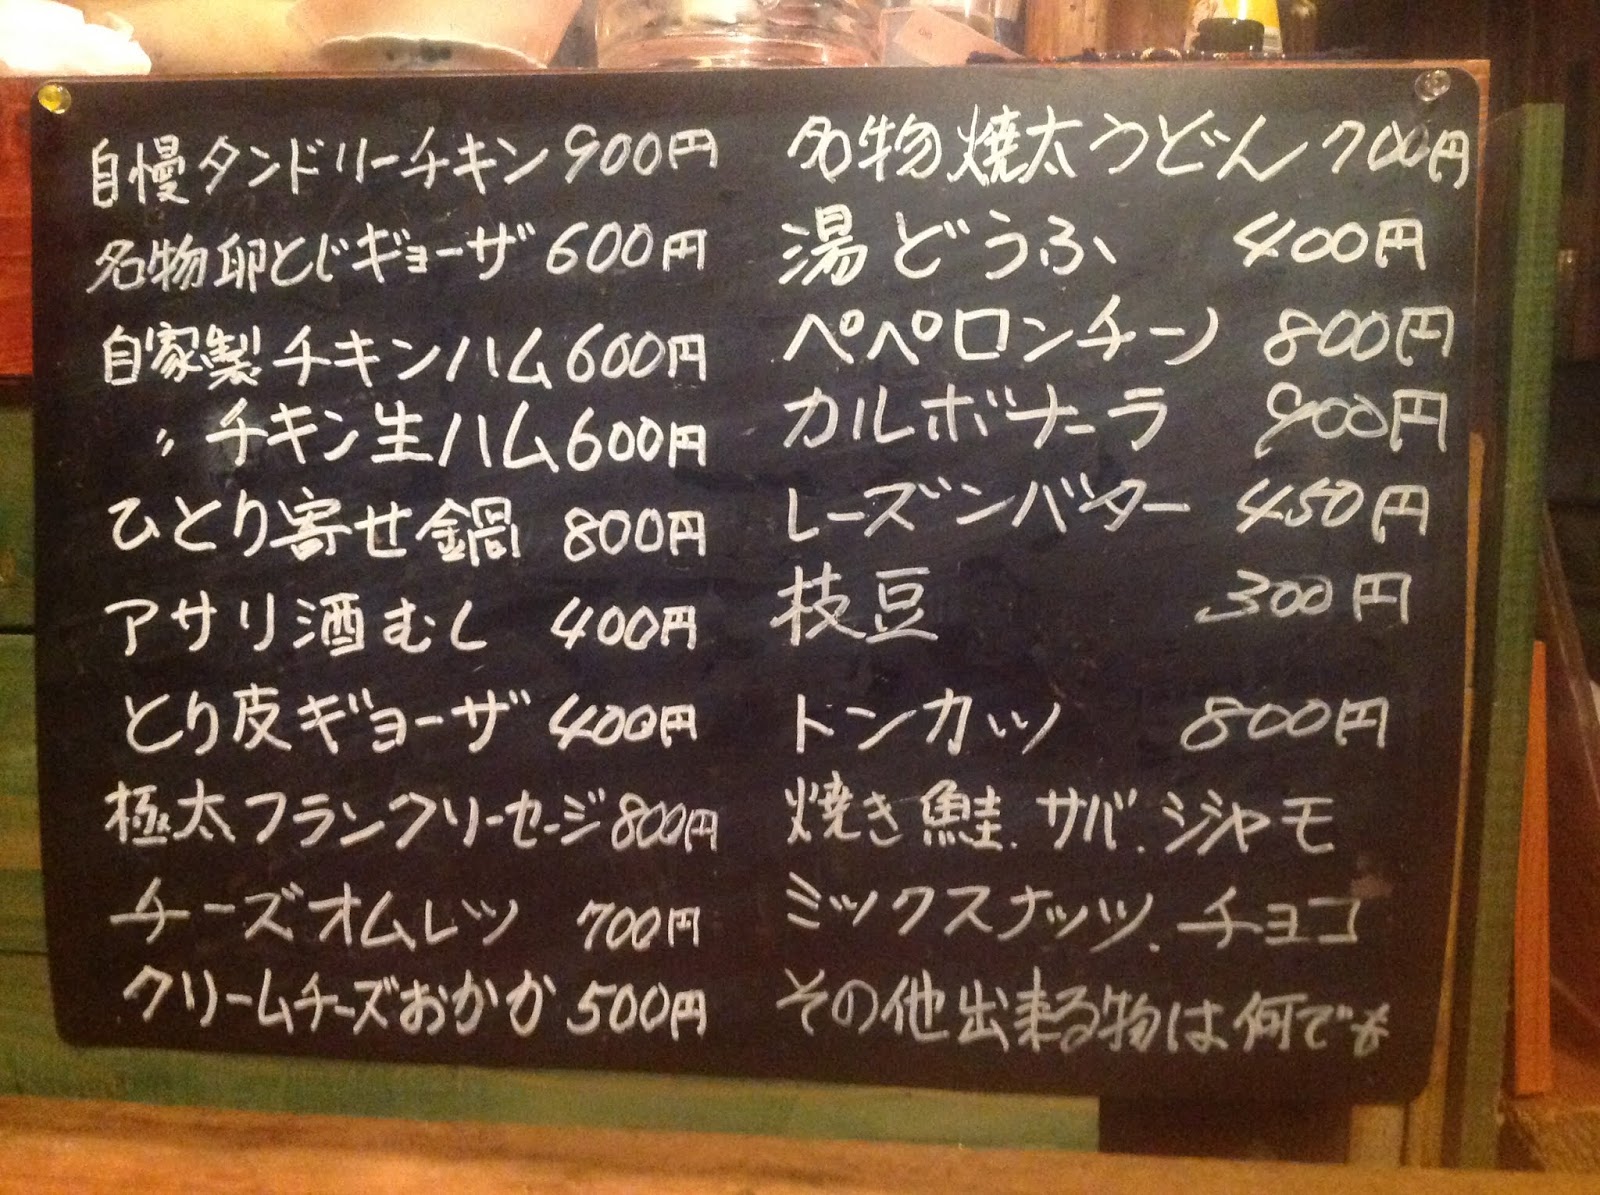 自慢タンドリーチキン 900円
名物卵とじギョーザ 600円
自家製チキンハム 600円
〃チキン生ハム 600円
ひとり寄せ鍋 800円
アサリ酒むし 400円
とり皮ギョーザ 400円
極太フランクソーセージ 800円
チーズオムレツ 700円
クリームチーズおかか 500円
名物焼太うどん 700円
湯どうふ 400円
ペペロンチーノ 800円
カルボナーラ 900円
レーズンバター 450円
枝豆 300円
トンカツ 800円
焼き鮭.サバ.シシャモ
ミックスナッツ.チョコ
その他出来る物は何でも